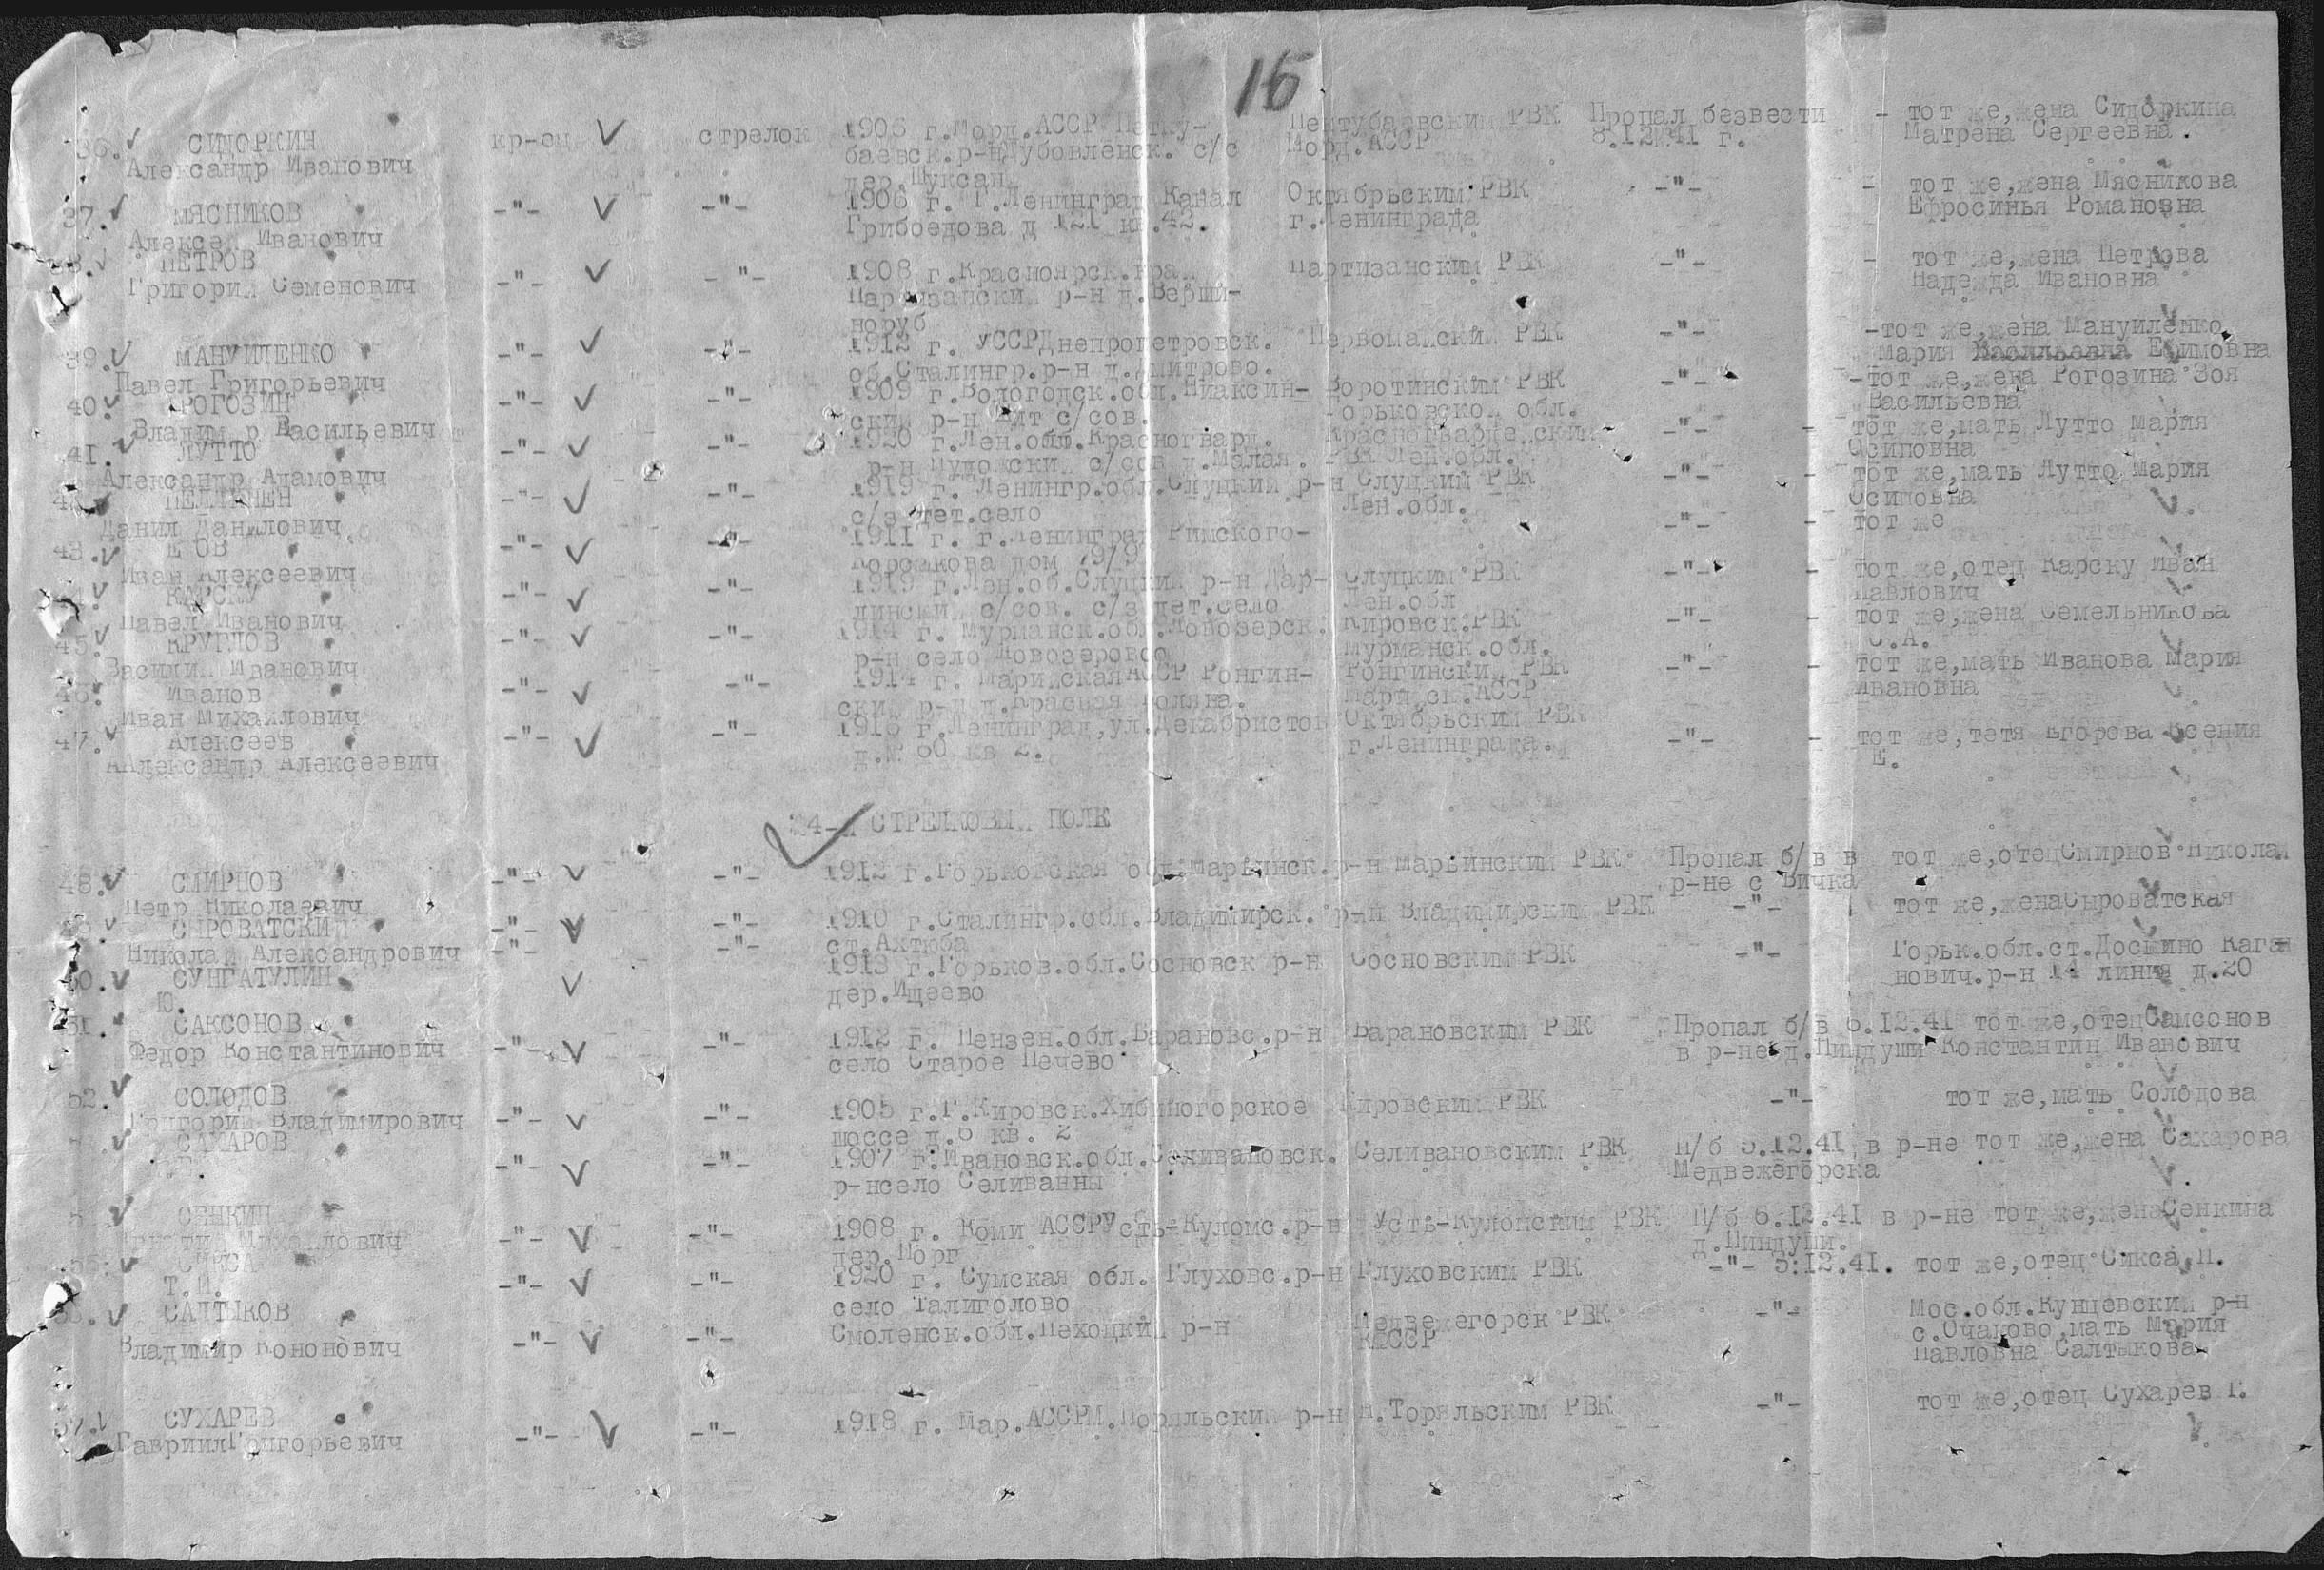 15
36. СИДОРКИН кр-ец стрелок 1906 г.Морд.АССР Пенту- Пентубаевским РВК Пропал безвести - тот же,жена Сидоркина
Александр Иванович баевск.р-н Дубовленск. с/с Морд.АССР 8.12.41 г. Матрена Сергеевна.
дер.Шуксан
37. МЯСНИКОВ -"- -"- 1906 г. Г.Ленинград Канал Октябрьским РВК -"- - тот же,жена Мясникова
Алексей Иванович Грибоедова д 121 кв.42. г.Ленинграда Ефросинья Романовна
38. ПЕТРОВ -"- -"- 1908 г.Красноярск.край Партизанским РВК -"- - тот же,жена Петрова
Григорий Семенович Партизанский р-н д.Верши- Надежда Ивановна
норуб
39. МАНУИЛЕНКО -"- -"- 1912 г. УССРДнепропетровск. Первомайский РВК -"- -тот же,жена Мануиленко
Павел Григорьевич об.Сталингр.р-н д.Дмитрово. Мария Васильевна Ефимовна
40. РОГОЗИН -"- -"- 1909 г.Вологодск.обл.Ниаксин- Воротинским РВК -"- -тот же,жена Рогозина Зоя
Владимир Васильевич ский р-н с/сов. Горьковской обл. Васильевна
41. ЛУТТО -"- -"- 1920 г.Лен.обл.Красногвард. Красногвардейским -"- - тот же,мать Лутто Мария
Александр Адамович р-н с/сов д.Малая. РВК Лен.обл. Осиповна
42. ПЕЛЛИНЕН -"- -"- 1919 г. Ленингр.обл.Слуцкий р-н Слуцкий РВК -"- - тот же,мать Лутто Мария
Данил Данилович с/з Дет.село Лен.обл. Осиповна
43. -"- -"- 1911 г. г.Ленинград Римского- -"- - тот же
Иван Алексеевич Корсакова дом 79/9
44. КАРСКУ -"- -"- 1919 г.Лен.об.Слуцкий р-н Дар- Слуцким РВК -"- - тот же,отец Карску Иван
Павел Иванович линский с/сов. с/з Дет.село Лен.обл Павлович
45. КРУГЛОВ -"- -"- 1914 г. Мурманск.обл.Ловозерск. Кировск.РВК -"- - тот же,жена Семельникова
Василий Иванович р-н село Ловозерово Мурманск.обл. С.А.
46. Иванов -"- -"- 1914 г. МарийскаяАССР Ронгин- Ронгинский РВК -"- - тот же,мать Иванова Мария
Иван Михайлович ский р-н д.Красная Поляна. Марийск.АССР Ивановна
47. Алексеев -"- -"- 1916 г.Ленинград,ул.Декабристов Октябрьский РВК -"- - тот же,тетя Егорова Ксения
ААлександр Алексеевич д.№ 60 кв 2. г.Ленинграда. Е.
24-й СТРЕЛКОВЫЙ ПОЛК
48. СМИРНОВ -"- -"- 1912 г.Горьковская обл.Марьинск.р-н Марьинским РВК Пропал б/в в тот же,отецСмирнов Николай
Петр Николаевич р-не с Вичка
49. СЫРОВАТСКИЙ -"- -"- 1910 г.Сталингр.обл.Владимирск. р-н Владимирским РВК -"- тот же,женаСыроватская
Николай Александрович -"- -"- ст.Ахтюба
50. СУНГАТУЛИН 1913 г.Горьков.обл.Сосновск р-н Сосновским РВК -"- Горьк.обл.ст.Доскино Каган
Ю. дер.Ищеево нович.р-н 14 линия д.20
51. САКСОНОВ -"- -"- 1912 г. Пензен.обл.Барановс.р-н Барановским РВК Пропал б/в 6.12.41 тот же,отецСамсонов
Федор Константинович село Старое Печево в р-не д.Пиндуши Константин Иванович
52. СОЛОДОВ -"- -"- 1905 г.Г.Кировск.Хибиногорское Кировским РВК -"- тот же,мать Солодова
Григорий Владимирович шоссе д.6 кв. 2
53. САХАРОВ -"- -"- 1907 г.Ивановск.обл.Селивановск. Селивановским РВК П/б 5.12.41 в р-не тот же,жена Сахарова
р-нсело Селиванны Медвежегорска
СЕНКИН -"- -"- 1908 г. Коми АССРУсть-Куломс.р-н Усть-Куломским РВК П/б 6.12.41 в р-не тот же,женаСенкина
Михайлович дер.Порг д.Пиндуши.
55. СИКСА -"- -"- 1920 г. Сумская обл. Глуховс.р-н Глуховским РВК -"- 5.12.41. тот же,отец Сикса П.
Т.П. село Талиголово
56. САЛТЫКОВ -"- -"- Смоленск.обл.Пехоцкий р-н Медвежегорск РВК -"- Мос.обл.Кунцевский р-н
Владимир Кононович КФССР с.Очаково,мать Мария
Павловна Салтыкова
57. СУХАРЕВ -"- -"- 1918 г. Мар.АССРМ.Торяльский р-н Н.Торяльским РВК -"- тот же,отец Сухарев Г.
ГавриилГригорьевич